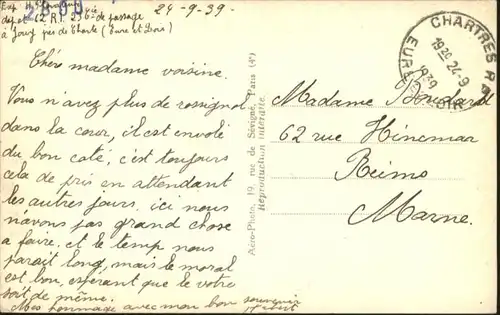 24-9-39-
dépot
de passage
à Jouy près de Chartres (Eure et Loir)
Chère madame voisine.
Vous n'avez plus de rossignol
dans la cour, il est envolé
du bon coté, c'est toujours
cela de pris en attendant
les autres jours. ici nous
n'avons pas grand chose
a faire. et le temp nous
parait long, mais le moral
est bon, espérant que le votre
soit de même.
Mes hommage avec mon bon souvenir
Aéro-Photo, 19, rue de Sévigné, Paris (4e)
Reproduction interdite
CHARTRES
1920 24-9
1939
EURE
Madame Boudard
62 rue Hincmar
Reims
Marne.